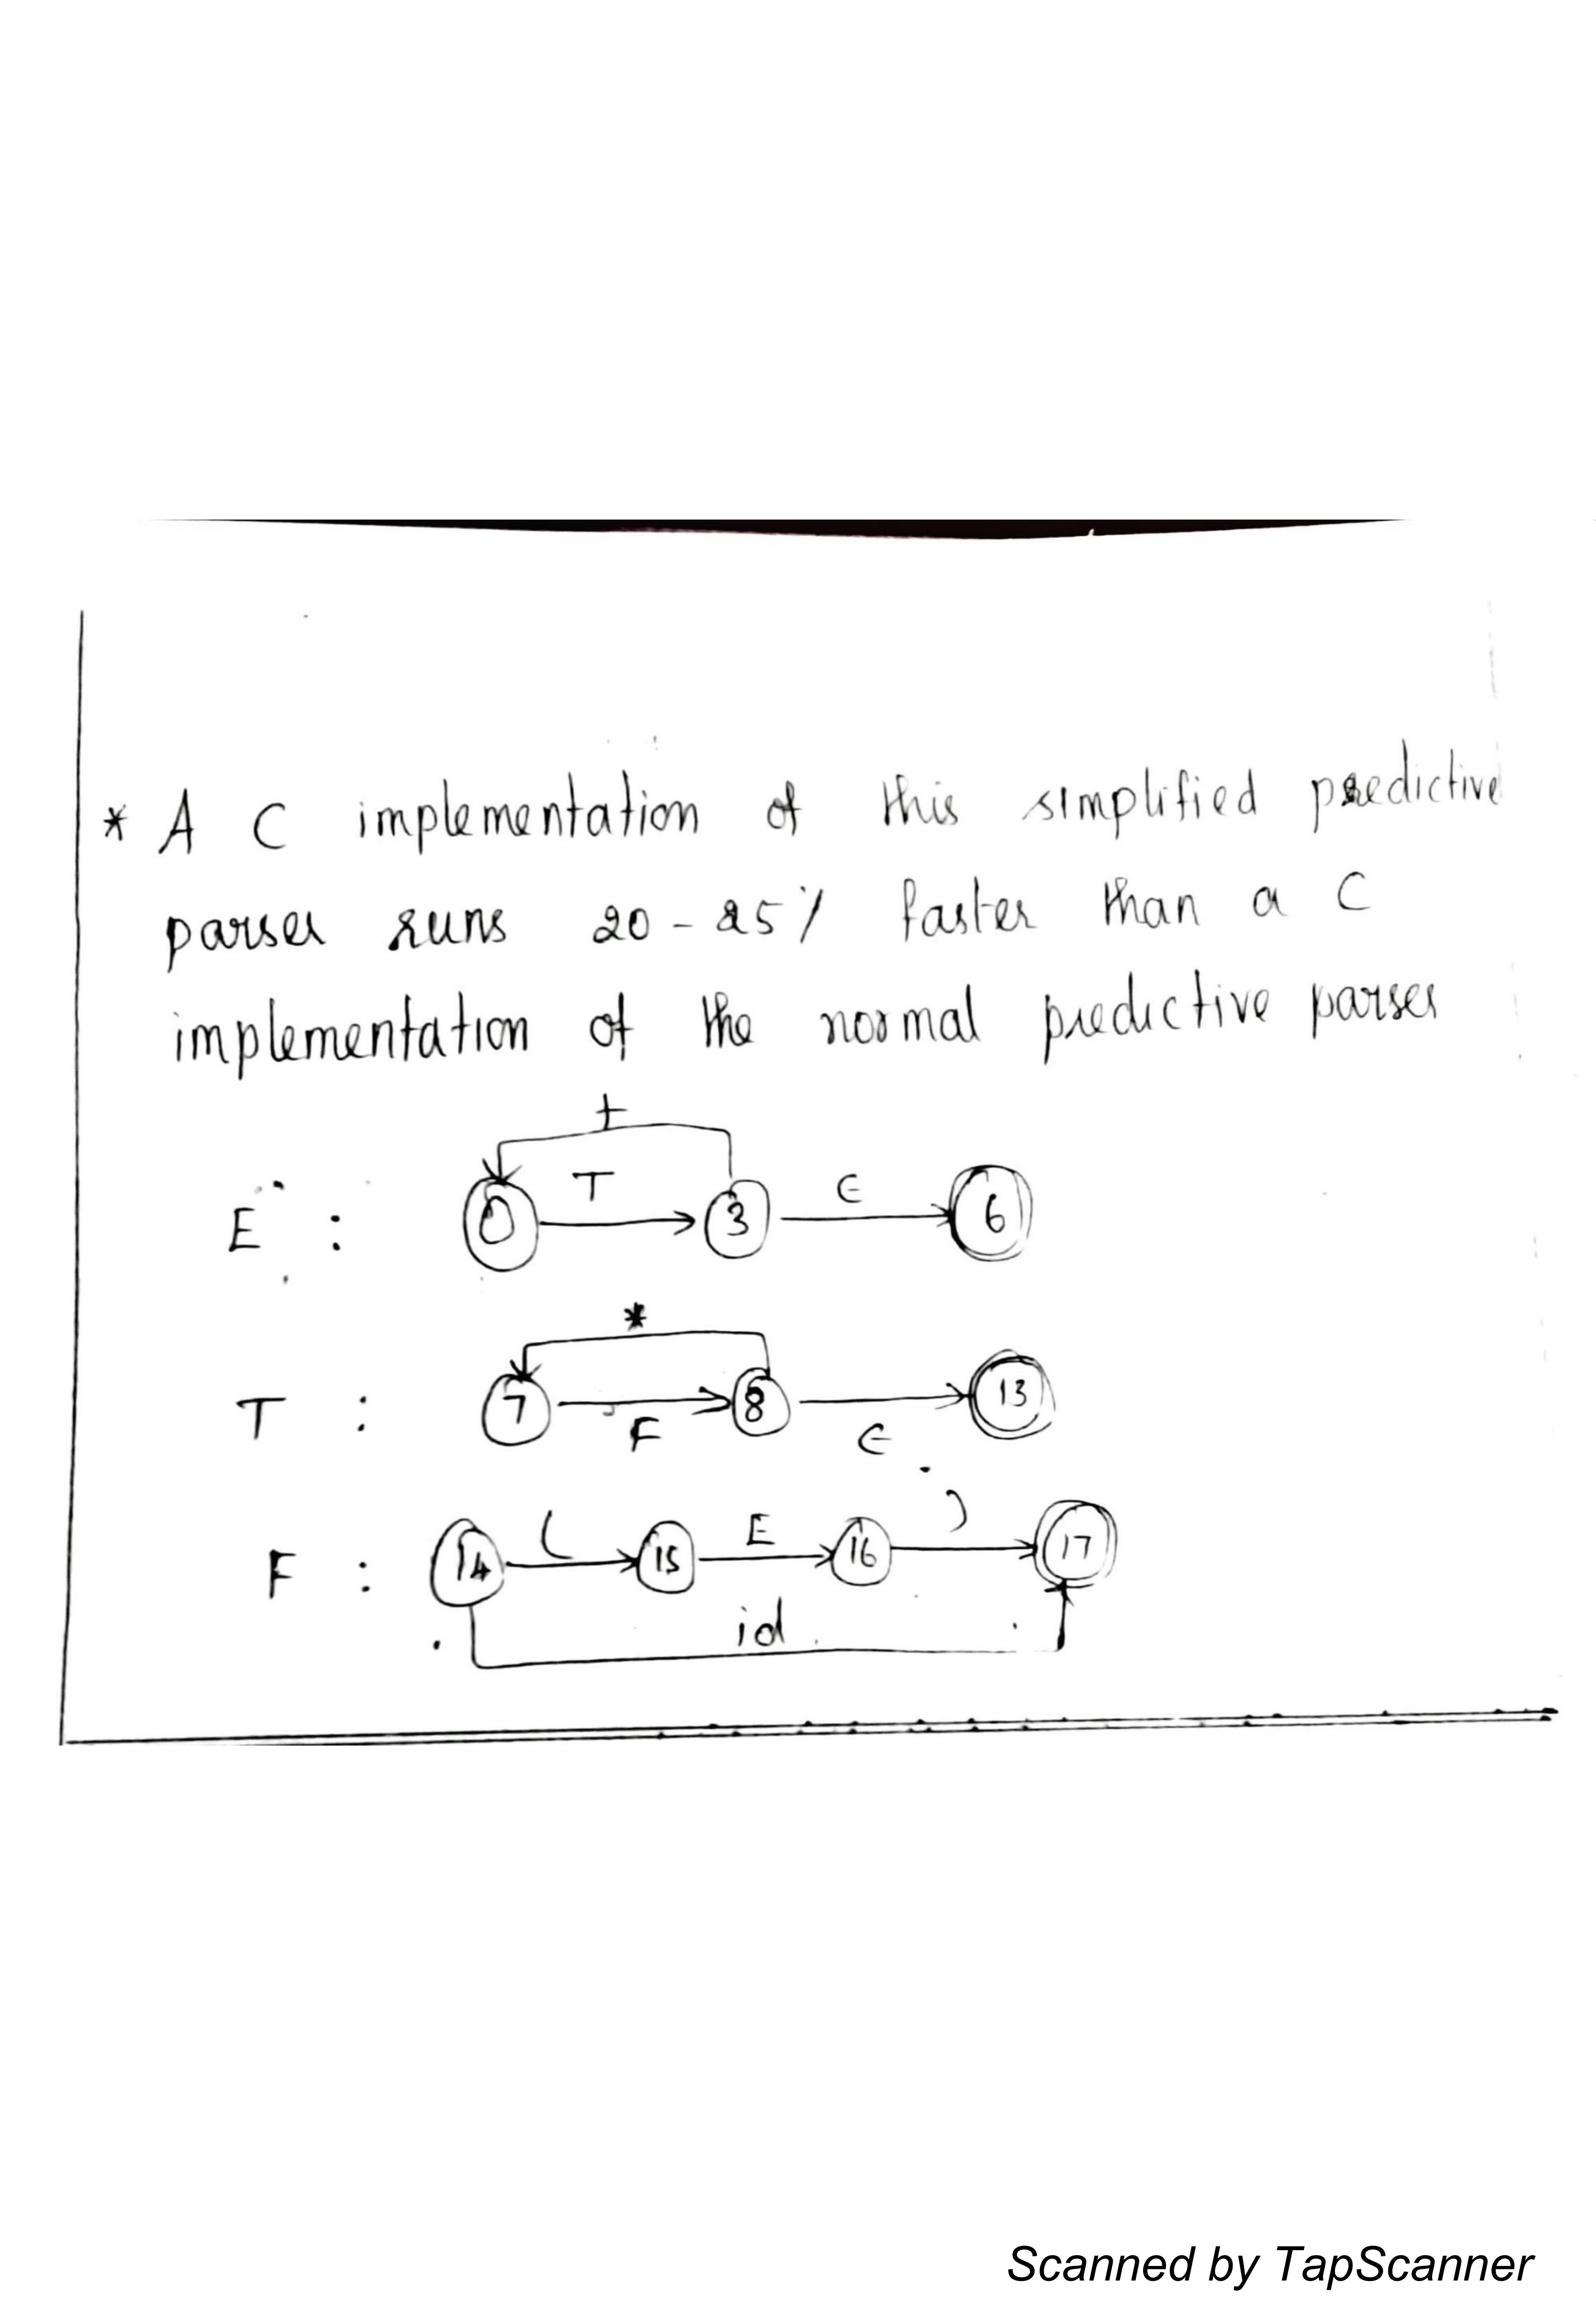 * A C implementation of this simplified predictive
parser runs 20-25% faster than a C
implementation of the normal predictive parser
+
E : 0 T 3 ϵ 6
*
T : 7 F 8 ϵ 13
F : 14 ( 15 E 16 ) 17
id
Scanned by TapScanner